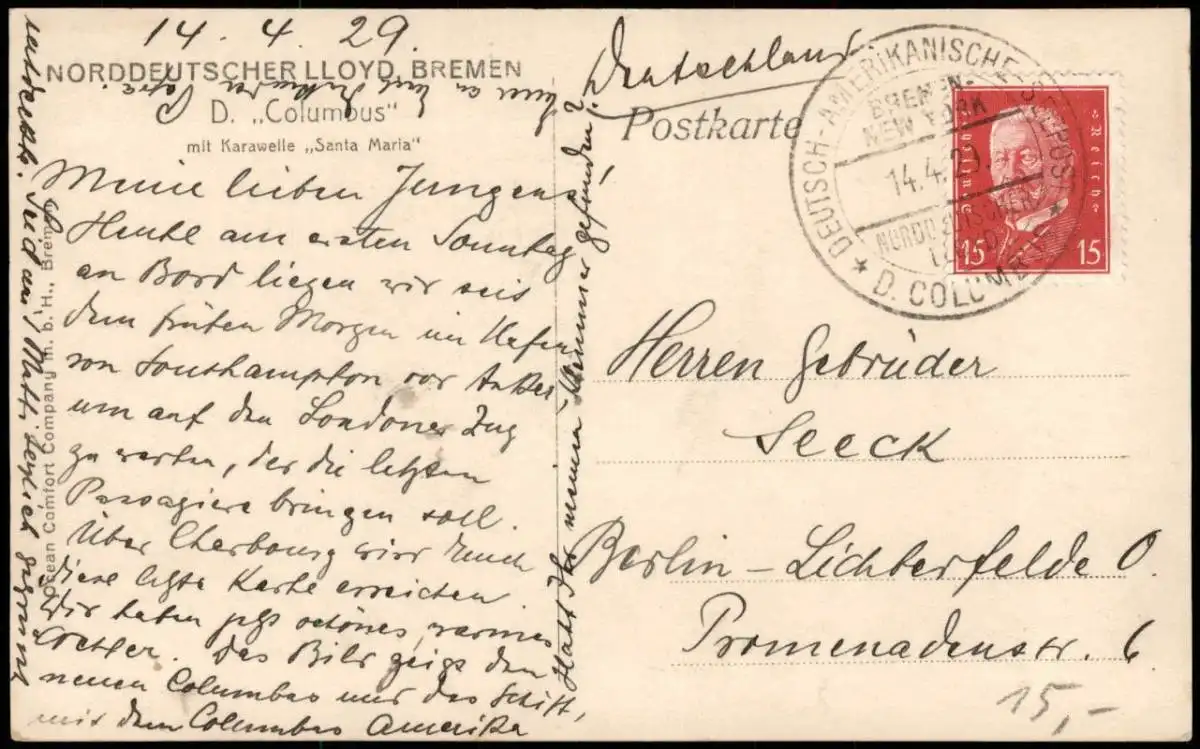 14. 4. 29.
NORDDEUTSCHER LLOYD, BREMEN
D. „Columbus"
mit Karawelle „Santa Maria"
Meine lieben Jungens!
Heute am ersten Sonntag
an Bord liegen wir seit
dem frühen Morgen im Hafen
von Southampton vor Anker,
um auf den Londoner Zug
zu warten, der die letzten
Passagiere bringen soll.
Über Cherbourg wird Euch
diese letzte Karte erreichen.
Wir haben jetzt schönes, warmes
Wetter. Das Bild zeigt den
neuen Columbus und das Schiff,
mit dem Columbus Amerika
entdeckt. Seid mit Mutti herzlich gegrüsst
von Papa.
Habt Ihr meine Nummer gefunden?
Ocean Comfort Company m. b. H., Bremen
Deutschland
Postkarte
DEUTSCH-AMERIKANISCHE SEEPOST
BREMEN-
NEW YORK
14.4.29.
NORDDEUTSCHER
LLOYD
★ D. COLUMBUS ★
Deutsches Reich
15 15
Herren Gebrüder
Seeck
Berlin - Lichterfelde O.
Promenadenstr. 6
15,-